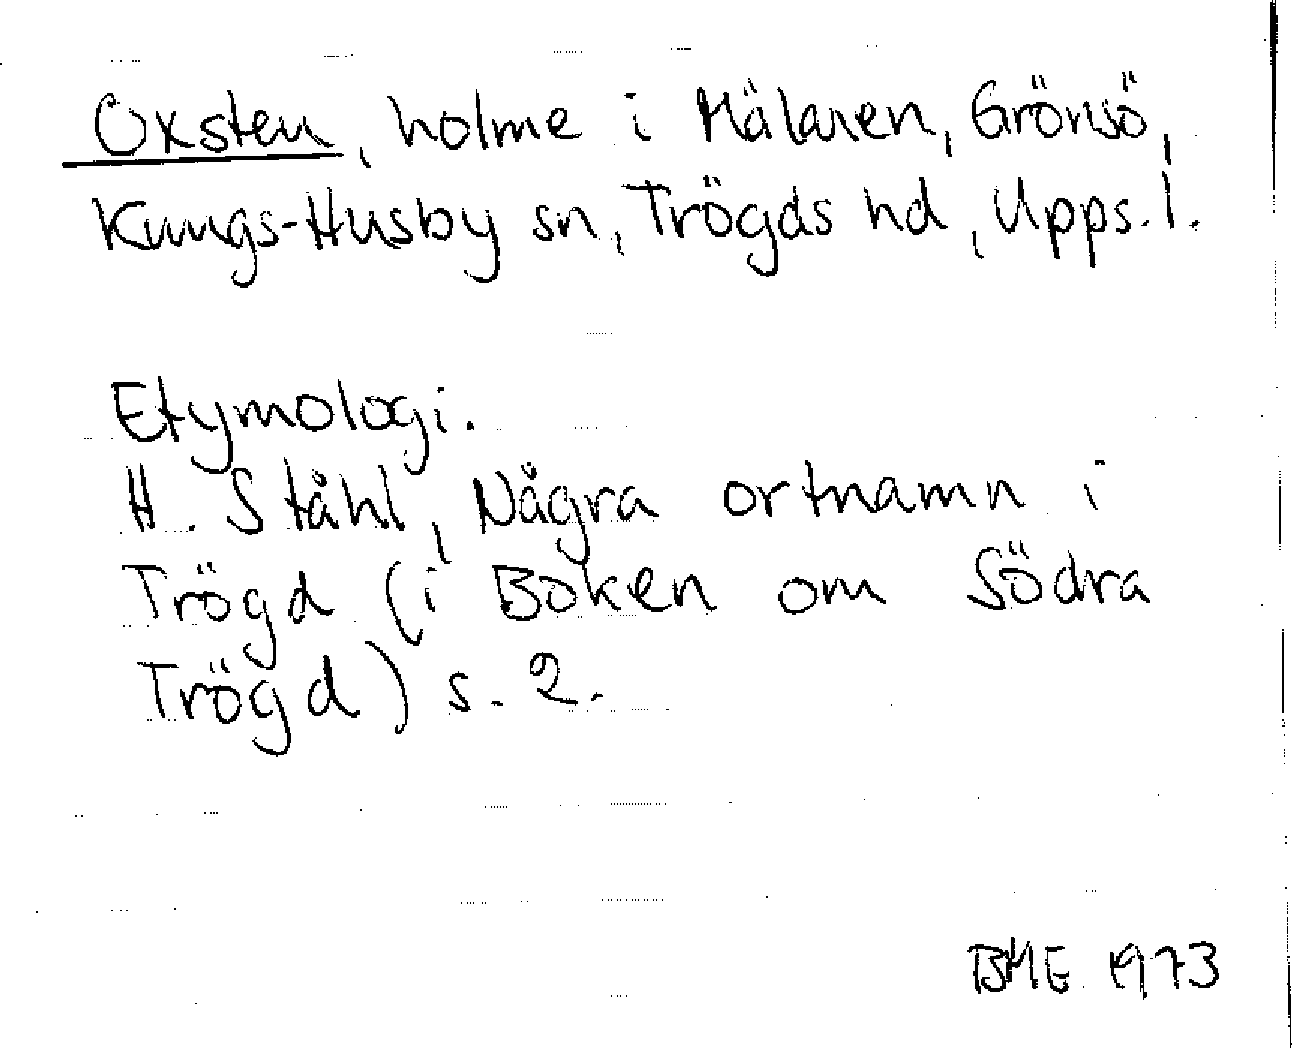 Oxsten, holme i Mälaren, Grönsö,
Kungs-Husby sn, Trögds hd, Upps. l.
Etymologi.
H. Ståhl, Några ortnamn i
Trögd (i Boken om Södra
Trögd) s. 2.
BME 1973